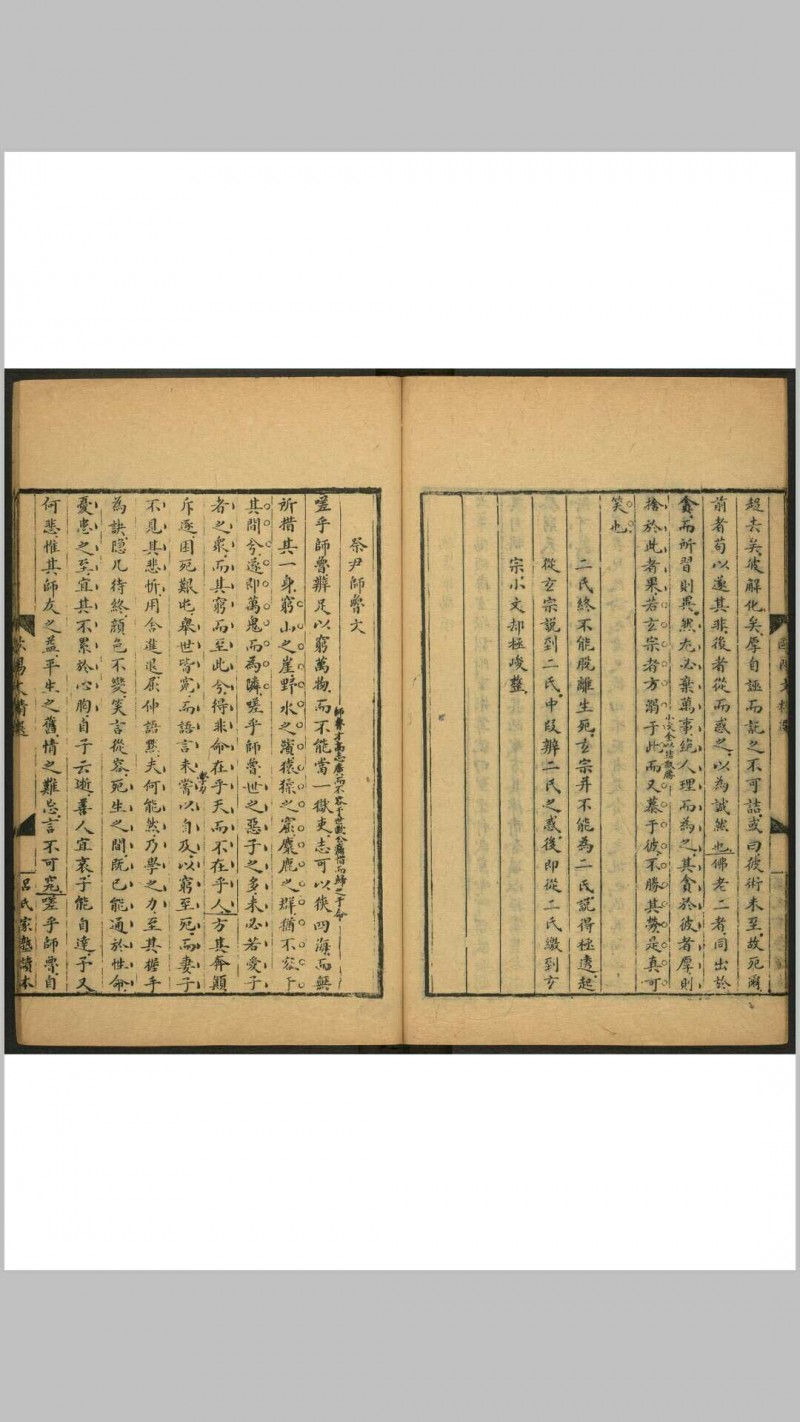 超去矣彼解化矣厚自誣而託之不可詰或曰彼術未至故死爾
前者苟以遂其非後者從而惑之以為誠然也佛老二者同出於
貪而所習則異然尤必棄萬事絕人理而為之其貪於彼者厚則
捨於此者果若玄宗者方溺于此而又慕于彼不勝其勞是真可
笑也
二氏終不能脫離生死玄宗并不能為二氏說得極透起
從玄宗說到二氏中段辨二氏之惑後即從二氏繳到玄
宗小文却極峻整
祭尹師魯文
師魯才高志廣而不容于世歐公痛惜而歸之于命
嗟乎師魯辨足以窮萬物而不能當一獄吏志可以狹四海而無
所措其一身窮山之崖野水之濱猿猱之窟麋鹿之群猶不容于
其間兮遂即萬鬼而為隣嗟乎師魯世之惡子之多未必若愛子
者之衆而其窮而至此兮得非命在乎天而不在乎人方其奔顛
斥逐困死艱屯舉世皆寃而語言未嘗以自及以窮至死而妻子
不見其悲忻用舍進退屈伸語默夫何能然乃學之力至其握手
為訣隱几待終顏色不變笑言從容死生之間既已能通於性命
憂患之至宜其不累於心胸自子云逝善人宜哀子能自達予又
何悲惟其師友之益平生之舊情之難忘言不可究嗟乎師魯自
呂氏家塾讀本